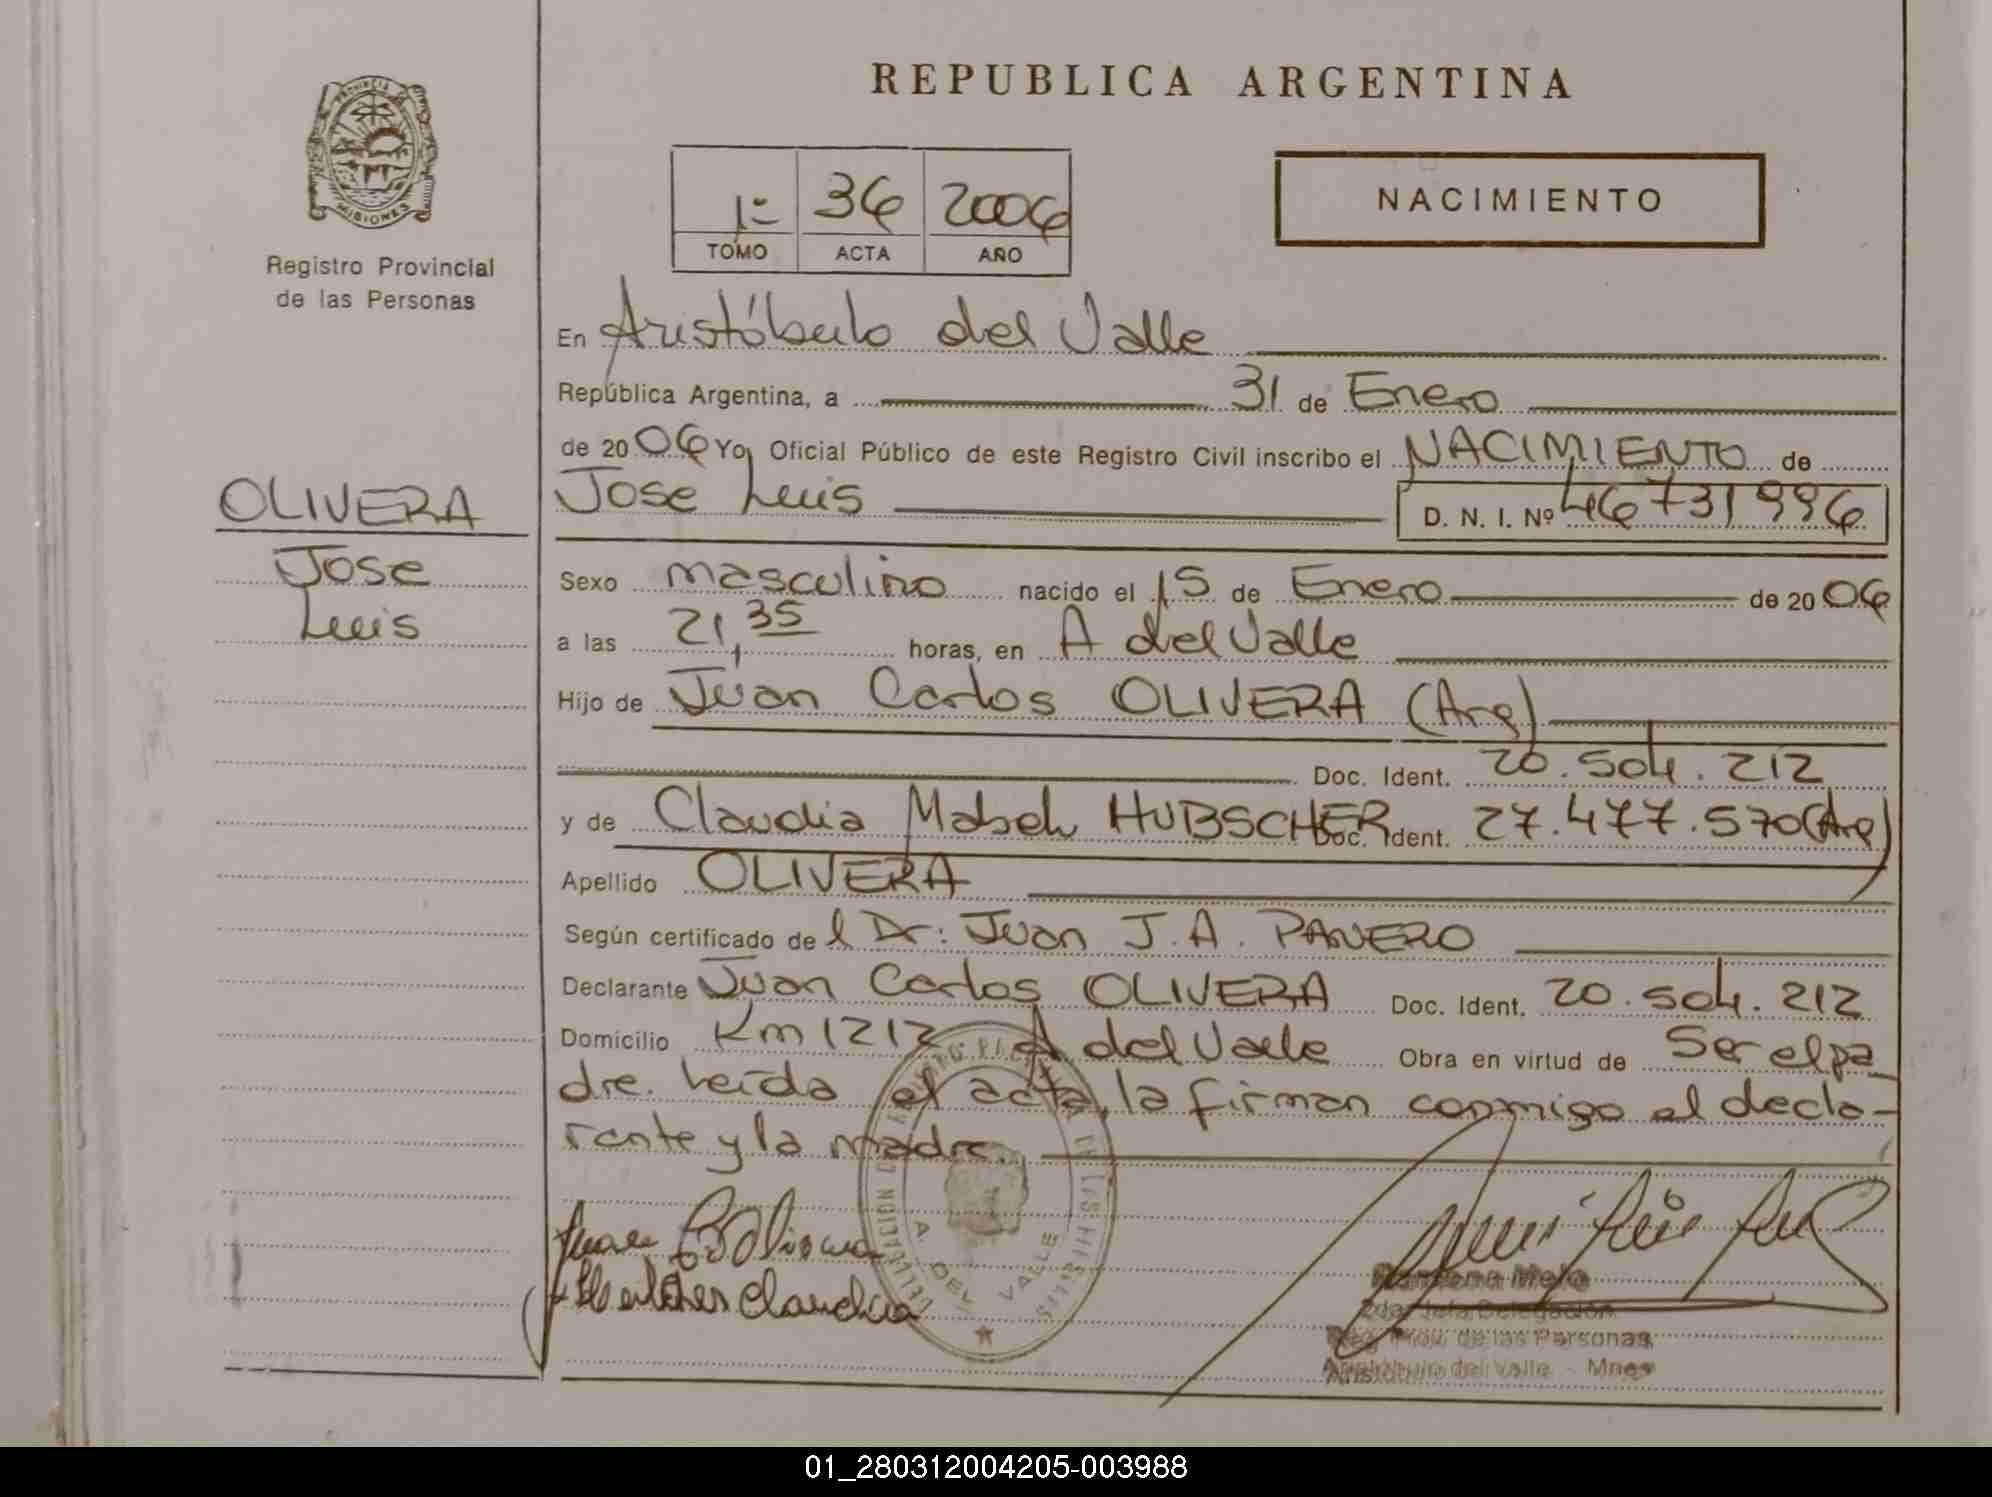 REPUBLICA ARGENTINA
PROVINCIA DE
MISIONES
Registro Provincial
de las Personas
1º 36 2006
TOMO ACTA AÑO
NACIMIENTO
En Aristóbulo del Valle
República Argentina, a 31 de Enero
de 2006 Yo, Oficial Público de este Registro Civil inscribo el NACIMIENTO de
OLIVERA
Jose
Luis
Jose Luis D. N. I. Nº 46731996
Sexo masculino nacido el 15 de Enero de 2006
a las 21,35 horas, en A del Valle
Hijo de Juan Carlos OLIVERA (Arg)
Doc. Ident. 20.504.212
y de Claudia Mabel HUBSCHER Doc. Ident. 27.477.570 (Arg)
Apellido OLIVERA
Según certificado del Dr: Juan J.A. PANERO
Declarante Juan Carlos OLIVERA Doc. Ident. 20.504.212
Domicilio Km 1212 A del Valle Obra en virtud de Ser el pa
dre. Leída el acta, la firman conmigo el decla-
rante y la madre.
Juan C Olivera
Hubscher Claudia
A. DEL VALLE
Ramona Melo
2da. Jefa Delegación
Reg. Prov. de las Personas
Aristóbulo del Valle - Mnes
01_280312004205-003988